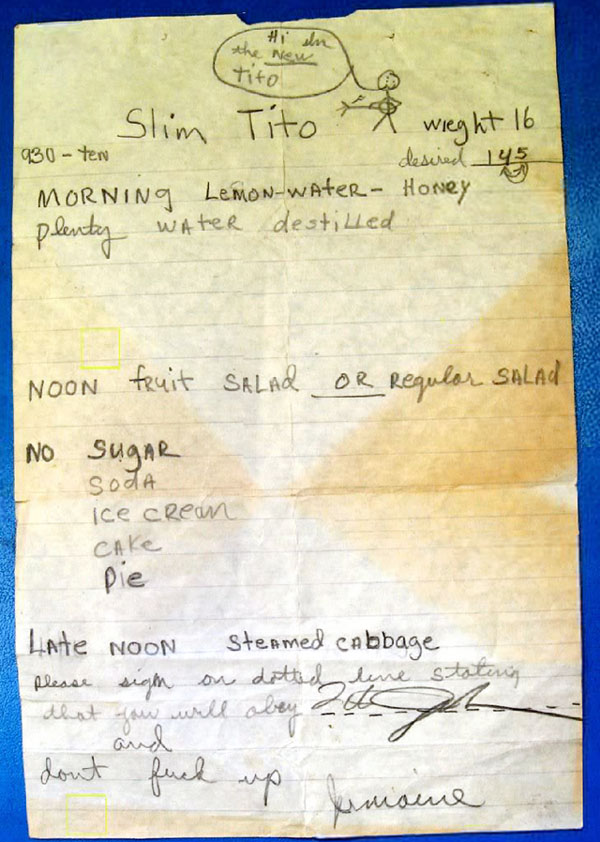 Hi Im
the New
Tito
Slim Tito
wieght 16
930 - ten
desired 145
MORNING LEMON-WATER - HONEY
plenty WATER destilled
NOON fruit SALAd OR Regular SALAd
NO SUgAR
SOdA
ICE CREAM
CAKE
Pie
LAte NOON SteAMed CAbbage
please sign on dotted line stating
that you will obey
and
dont fuck up
Jermaine